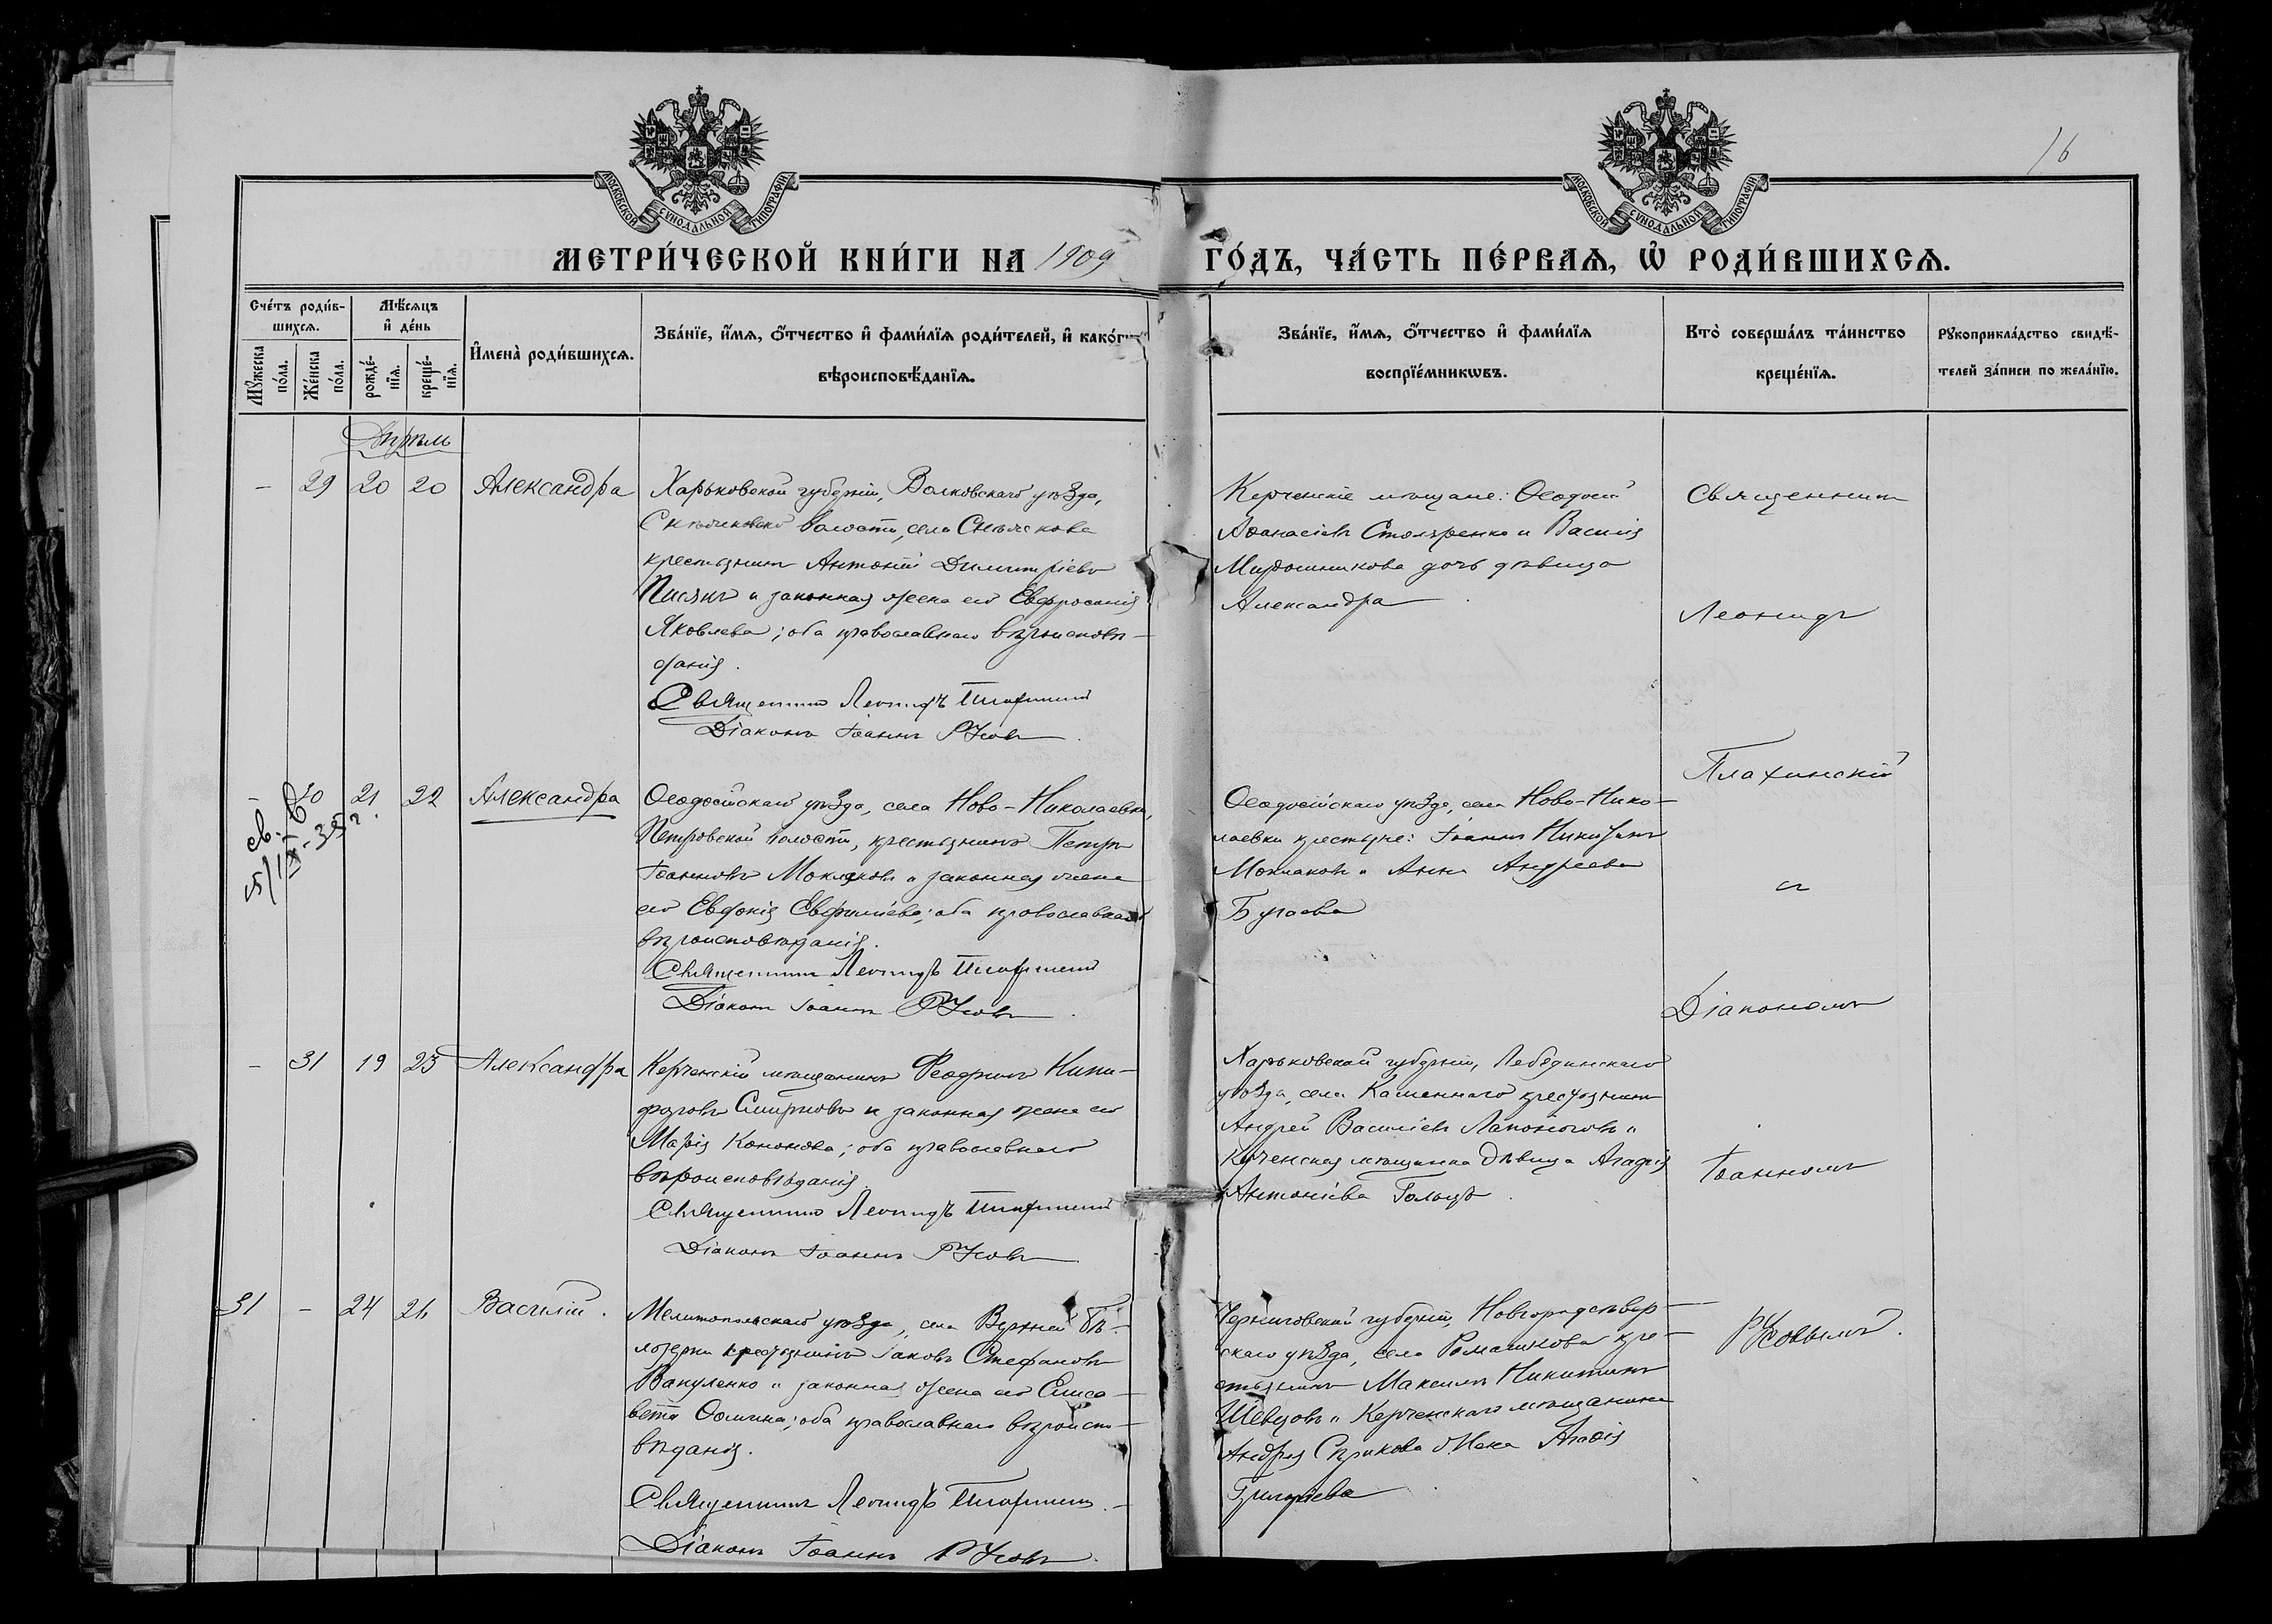 16
МОСКОВСКОЙ СУНОДАЛЬНОЙ ТИПОГРАФІИ
МОСКОВСКОЙ СУНОДАЛЬНОЙ ТИПОГРАФІИ
МЕТРИ́ЧЕСКОЙ КНИ́ГИ НА 1909 ГО́ДЪ, ЧА́СТЬ ПЕ́РВАѦ, Ѡ҆ РОДИ́ВШИХСѦ.
Сче́тъ роди́в-
шихсѧ.
Мꙋ́жеска
по́ла.
Же́нска
по́ла.
Мѣ́сяцъ
и҆ де́нь
рожде́-
нїѧ.
креще́-
нїѧ.
И҆мена̀ роди́вшихсѧ.
Зва́нїе, и҆́мѧ, ѻ҆́тчество и҆ фами́лїѧ роди́телей, и҆ како́гѡ
вѣроисповѣ́данїѧ.
Зва́нїе, и҆́мѧ, ѻ҆́тчество и҆ фами́лїѧ
воспрїе́мникѡвъ.
Кто̀ соверша́лъ та́инство
креще́нїѧ.
Рꙋкоприкла́дство свидѣ́-
телей за́писи по жела́нїю.
Апрѣль
— 29 20 20 Александра
Харьковской губерніи, Валковскаго уѣзда,
волости, села Снѣжкова
крестьянинъ Антоній Димитріевъ
и законная жена его Евфросинія
Яковлева; оба православнаго вѣроисповѣ-
данія.
Священникъ Леонидъ
Діаконъ Іоаннъ Русовъ
Керченскіе мѣщане: Ѳеодосій
Аѳанасіевъ Столяренко и Василія
Мирошникова дочь дѣвица
Александра
Священник
Леонидъ
Плахинскій
— 30 21 22 Александра
св.
5/IX-35 г.
Ѳеодосійскаго уѣзда, села Ново-Николаевки,
Петровской волости, крестьянинъ Петръ
Іоанновъ Моклаковъ и законная жена
его Евдокія Евфиміева; оба православнаго
вѣроисповѣданія.
Священникъ Леонидъ
Діаконъ Іоаннъ Русовъ
Ѳеодосійскаго уѣзда, села Ново-Нико-
лаевки крестьяне: Іоаннъ
Моклаковъ и Анна Андреева
с
Діакономъ
— 31 19 23 Александра
Керченскій мѣщанинъ Ники-
форовъ Смирновъ и законная жена его
Марія Кононова; оба православнаго
вѣроисповѣданія
Священникъ Леонидъ
Діаконъ Іоаннъ Русовъ
Харьковской губерніи, Лебединскаго
уѣзда, села Каменнаго крестьянинъ
Андрей Василіевъ Лапоноговъ и
Керченская мѣщанка дѣвица
Антоніева
Іоанномъ
31 — 24 26 Василій.
Мелитопольскаго уѣзда, села Верхней Бѣ-
лозерки крестьянинъ Іаковъ Стефановъ
Вакуленко и законная жена его Елиса-
вета Ѳомина; оба православнаго вѣроиспо-
вѣданія.
Священникъ Леонидъ
Діаконъ Іоаннъ Русовъ
Черниговской губерніи, Новгородсѣвер-
скаго уѣзда, села Ромашкова кре-
стьянинъ Максимъ Никитинъ
Шевцовъ и Керченскаго мѣщанина
Андрея жена Агаѳія
Григоріева
Русовымъ.